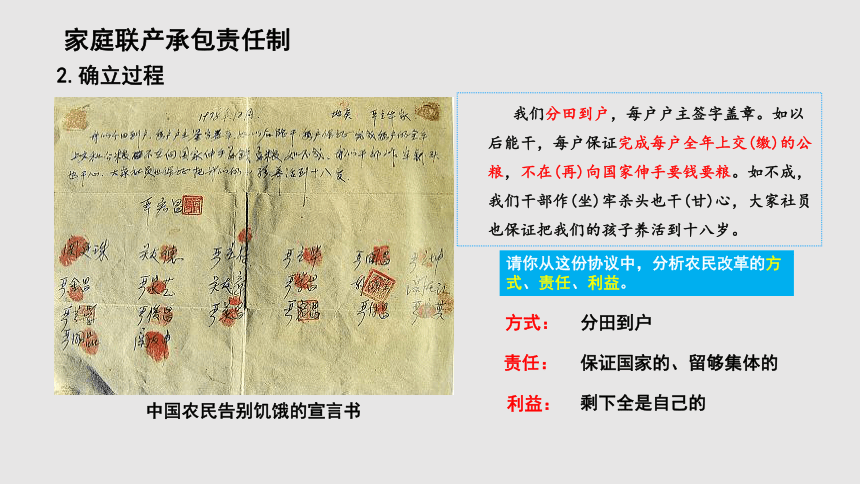 家庭联产承包责任制
2.确立过程
1978年12月 地点 严立华家
我们分田到户，每户户主签字盖章，如以后能干，每户保证完成每户的全年
上交和公粮，不在向国家伸手要钱要粮，如不成，我们干部作牢杀头
也干心，大家社员也保证把我们的小孩养活到十八岁
严宏昌
中国农民告别饥饿的宣言书
我们分田到户，每户户主签字盖章。如以
后能干，每户保证完成每户全年上交(缴)的公
粮，不在(再)向国家伸手要钱要粮。如不成，
我们干部作(坐)牢杀头也干(甘)心，大家社员
也保证把我们的孩子养活到十八岁。
请你从这份协议中，分析农民改革的方
式、责任、利益。
方式： 分田到户
责任： 保证国家的、留够集体的
利益： 剩下全是自己的